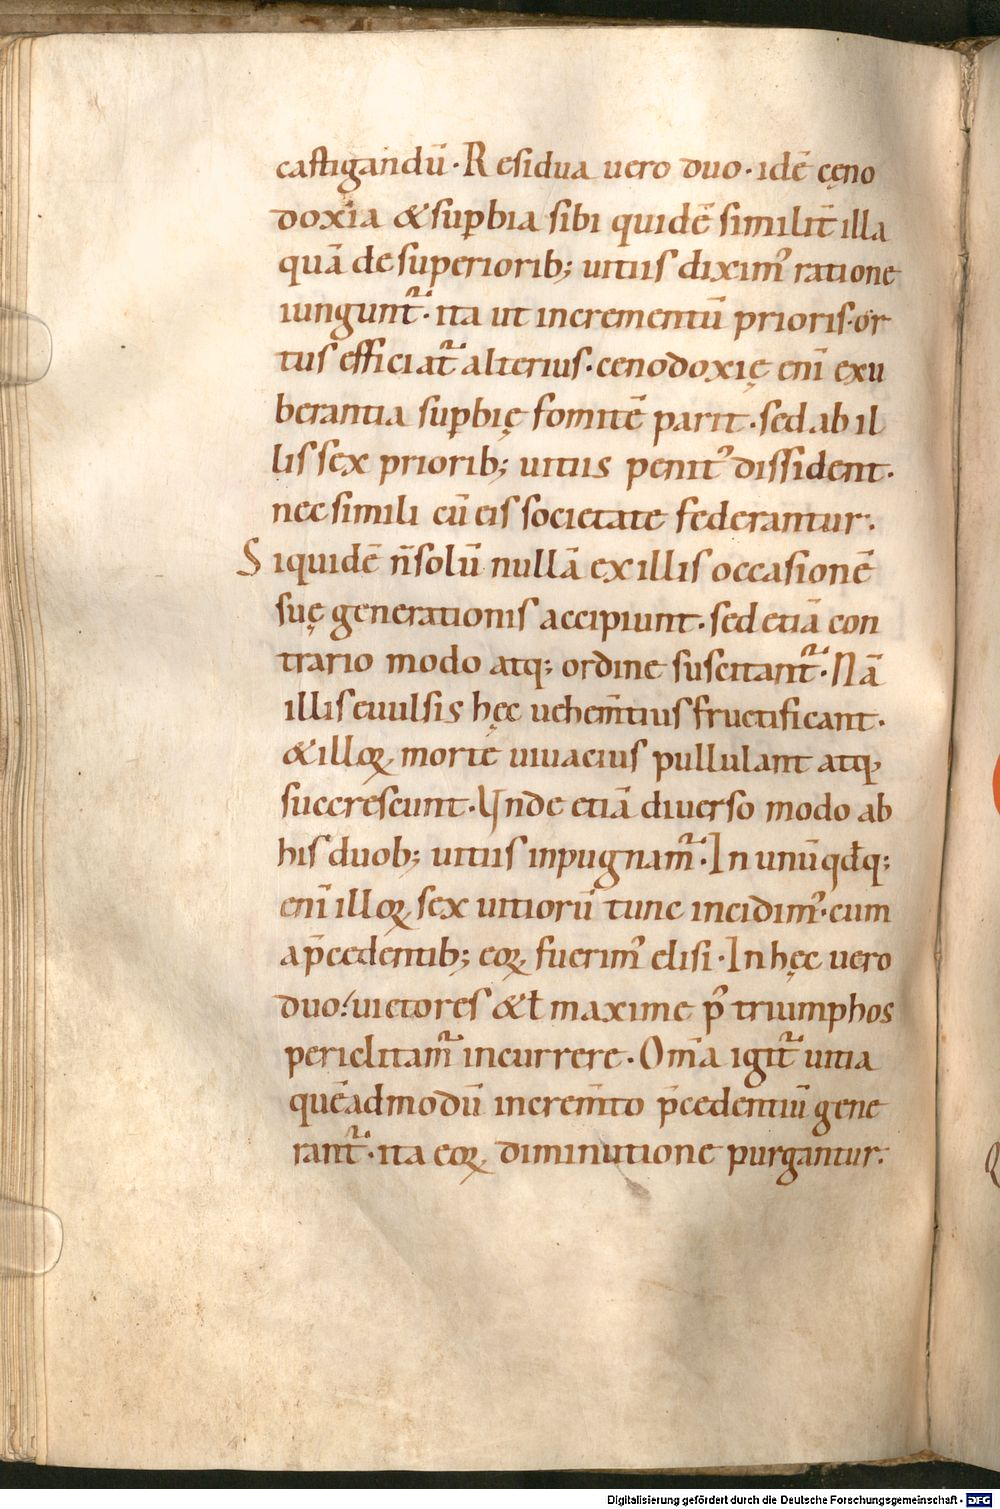 castigandū · Residua vero duo · idē cęno
doxia & suꝑbia sibi quidē similit̄ illa
quā de superiorib; uitiis diximꝰ ratione
iungunt᷑ · ita ut incrementū prioris · or
tus efficiat᷑ alterius · cenodoxię enī exu
berantia suꝑbię fomitē parit · sed ab il
lis sex priorib; uitiis penitꝰ dissident ·
nec simili cū eis societate federantur ·
Siquidē n̄ solū nullā ex illis occasionē
suę generationis accipiunt · sed etiā con
trario modo atq; ordine suscitant᷑ · Nā
illis euulsis hęc uehem̄tius fructificant ·
& illoꝝ morte uiuacius pullulant atq;
succrescunt · Unde etiā diuerso modo ab
his duob; uitiis inpugnam᷑ · In unūqdq;
enī illoꝝ sex uitiorū tunc incidimꝰ · cum
a p̄cedentib; eoꝝ fuerimꝰ elisi · In hęc uero
duo · uictores & ł maxime p̄ triumphos
periclitam᷑ incurrere · Om̄a igit᷑ uitia
quēadmodū increm̄to p̄cedentiū gene
rant᷑ · ita eoꝝ diminutione purgantur ·
Digitalisierung gefördert durch die Deutsche Forschungsgemeinschaft - DFG